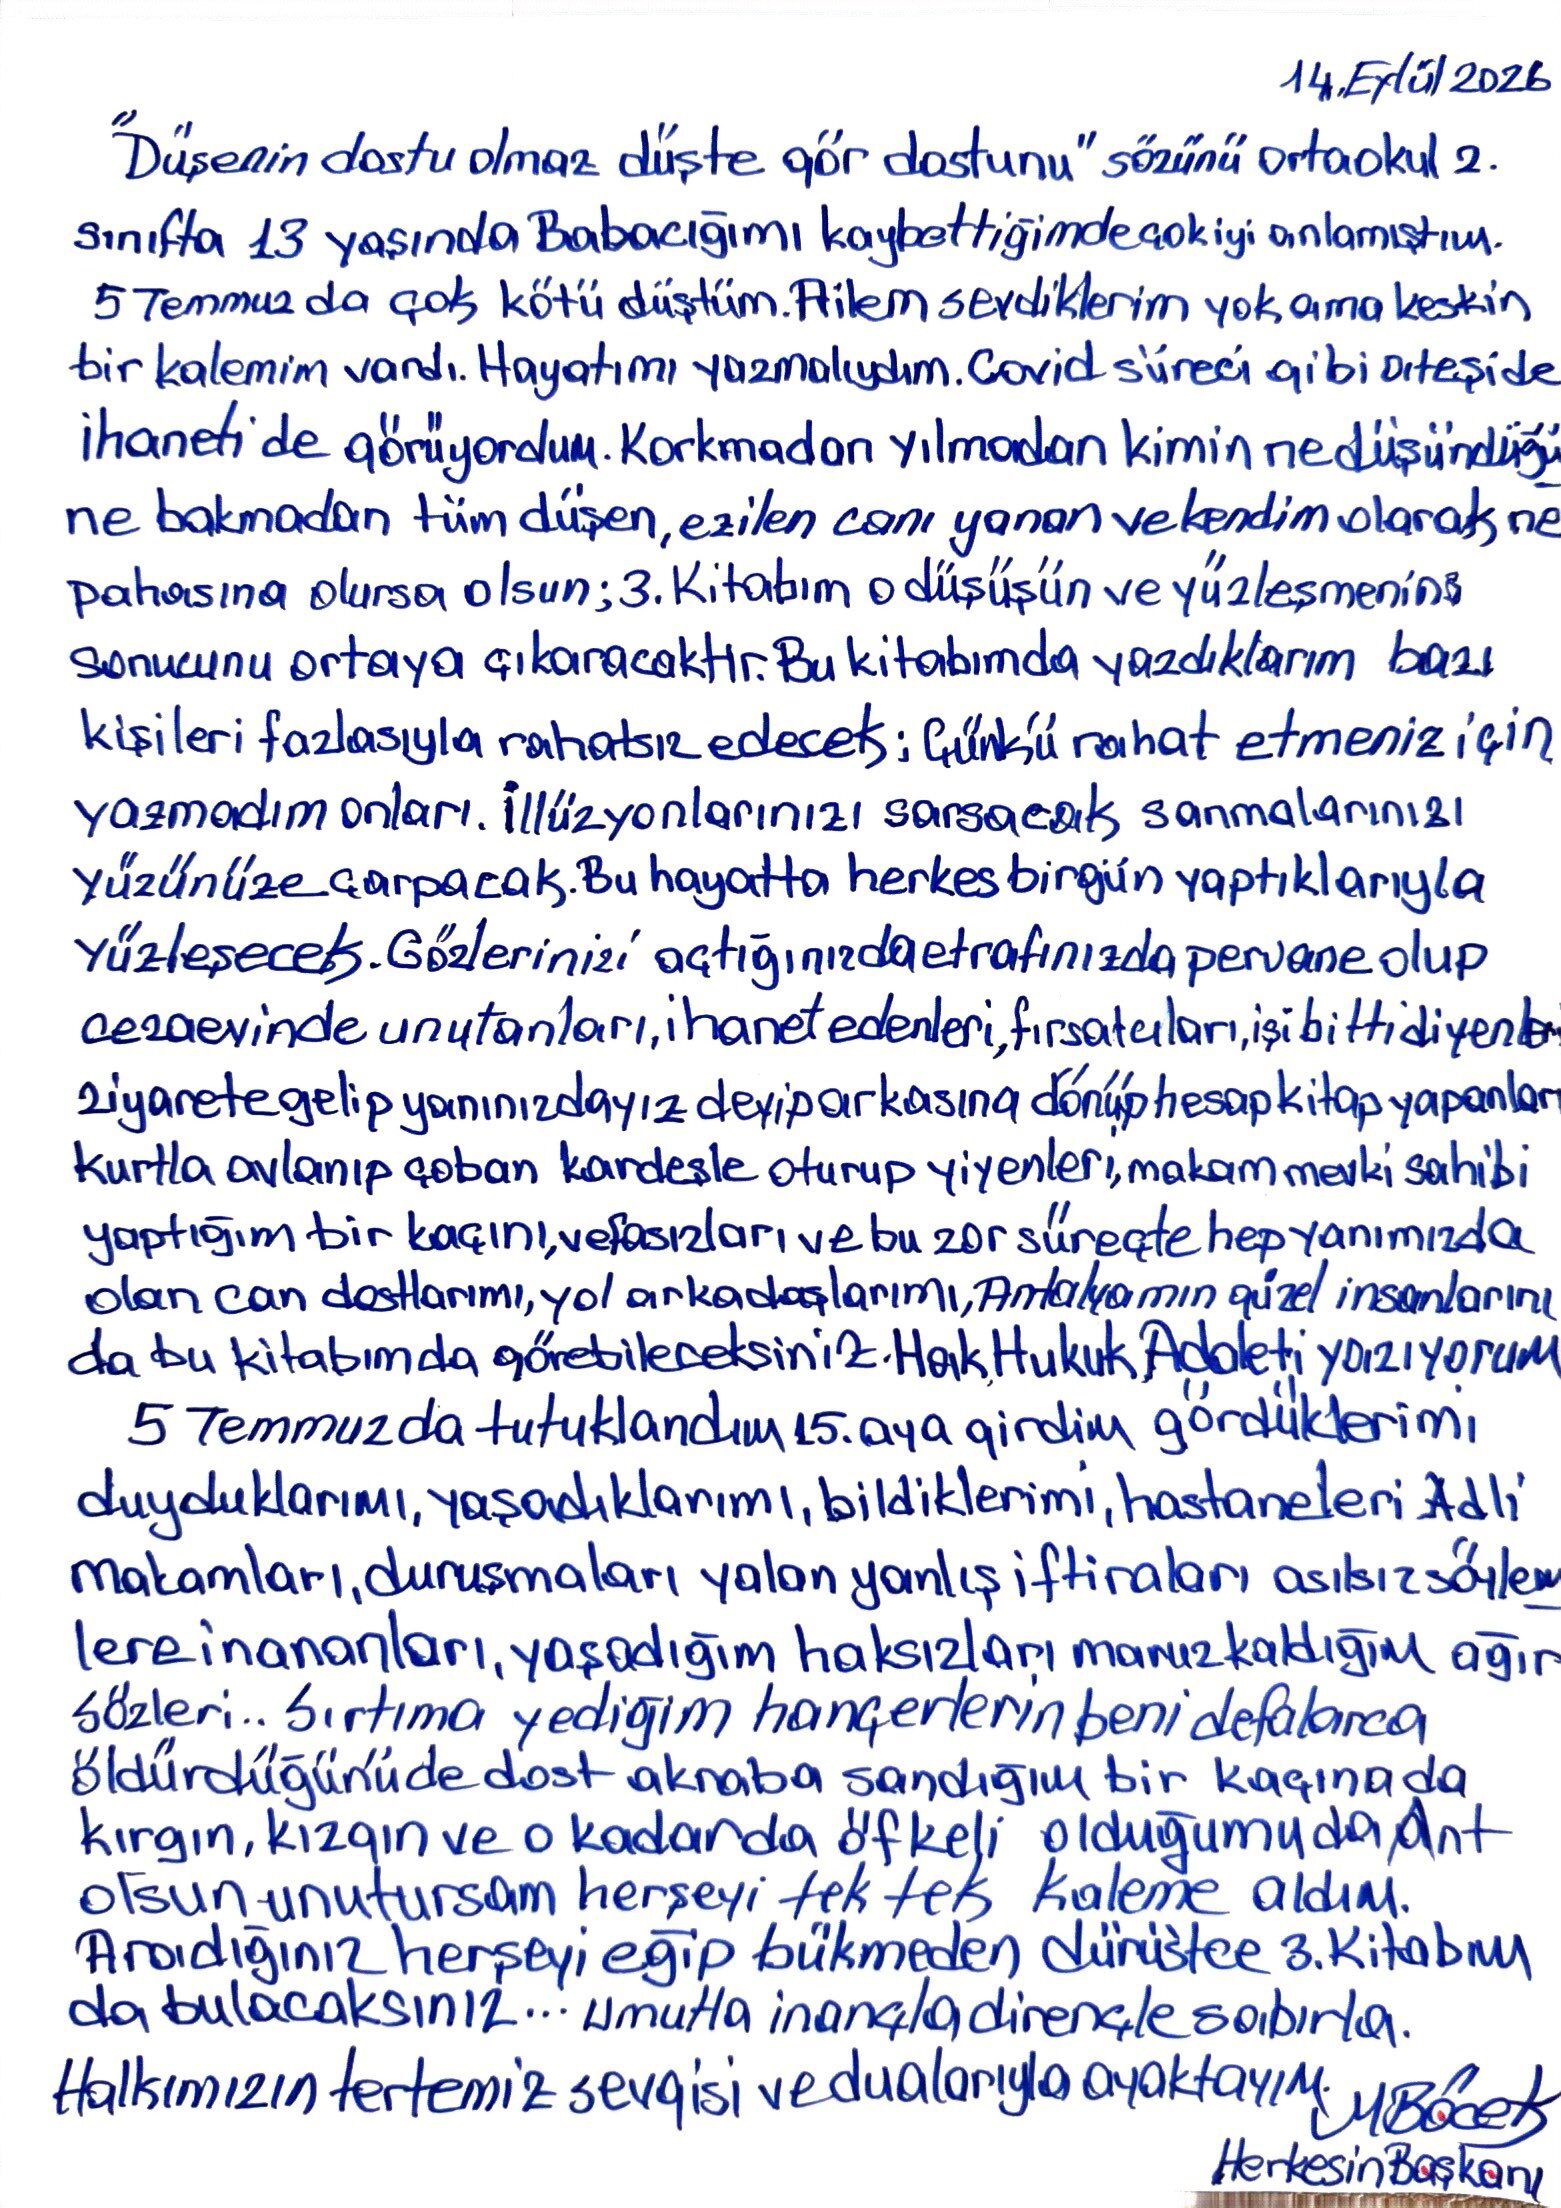 14.Eylül 2026
"Düşenin dostu olmaz düşte gör dostunu" sözünü ortaokul 2.
sınıfta 13 yaşında Babacığımı kaybettiğimde çok iyi anlamıştım.
5 Temmuz da çok kötü düştüm. Ailem sevdiklerim yok ama keskin
bir kalemim vardı. Hayatımı yazmalıydım. Covid süreci gibi ateşide
ihaneti de görüyordum. Korkmadan yılmadan kimin ne düşündüğü
ne bakmadan tüm düşen, ezilen canı yanan ve kendim olarak ne
pahasına olursa olsun; 3. Kitabım o düşüşün ve yüzleşmenin
sonucunu ortaya çıkaracaktır. Bu kitabımda yazdıklarım bazı
kişileri fazlasıyla rahatsız edecek; Çünkü rahat etmeniz için
yazmadım onları. İllüzyonlarınızı sarsacak sanmalarınızı
yüzünüze çarpacak. Bu hayatta herkes birgün yaptıklarıyla
yüzleşecek. Gözlerinizi açtığınızda etrafınızda pervane olup
cezaevinde unutanları, ihanet edenleri, fırsatcıları, işi bitti diyenleri
ziyarete gelip yanınızdayız deyip arkasına dönüp hesap kitap yapanları
kurtla avlanıp çoban kardeşle oturup yiyenleri, makam mevki sahibi
yaptığım bir kaçını, vefasızları ve bu zor süreçte hep yanımızda
olan can dostlarımı, yol arkadaşlarımı, Antalyamın güzel insanlarını
da bu kitabımda görebileceksiniz. Hak, Hukuk, Adaleti yazıyorum
5 Temmuzda tutuklandım 15. aya girdim gördüklerimi
duyduklarımı, yaşadıklarımı, bildiklerimi, hastaneleri Adli
makamları, duruşmaları yalan yanlış iftiraları asılsız söylem
lere inananları, yaşadığım haksızları maruz kaldığım ağır
sözleri.. Sırtıma yediğim hançerlerin beni defalarca
öldürdüğünü de dost akraba sandığım bir kaçına da
kırgın, kızgın ve o kadarda öfkeli olduğumu da, Ant
olsun unutursam herşeyi tek tek kaleme aldım.
Aradığınız herşeyi eğip bükmeden dürüstce 3. Kitabım
da bulacaksınız... Umutla inançla dirençle sabırla.
Halkımızın tertemiz sevgisi ve dualarıyla ayaktayım.
MBöcek
Herkesin Başkanı